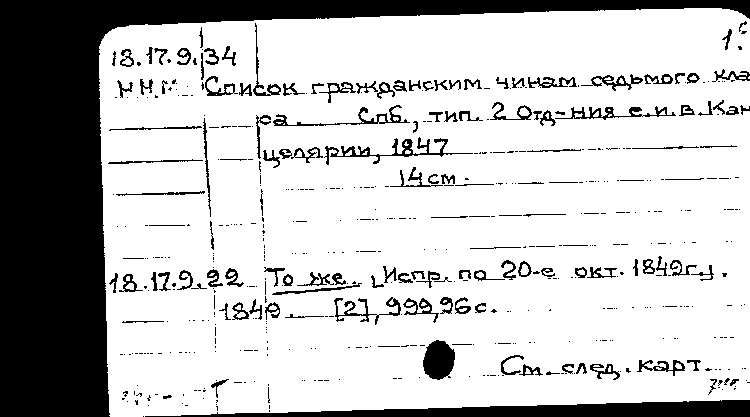 1.
18.17.9.34
Н.М.М. Список гражданским чинам седьмого кла
са. Спб., тип. 2 Отд-ния е.и.в. Кан
целярии, 1847
14 см.
18.17.9.22 То же. [Испр. по 20-е окт. 1849 г.].
1849. [2], 999, 96 с.
См. след. карт.